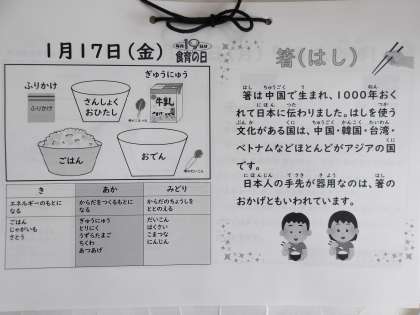 1月17日(金)
毎月19日は
食育の日
ふりかけ
さんしょく
おひたし
ぎゅうにゅう
牛乳
ごはん
おでん
き
あか
みどり
エネルギーのもとに
なる
からだをつくるもとに
なる
からだのちょうしを
ととのえる
ごはん
じゃがいも
さとう
ぎゅうにゅう
とりにく
うずらたまご
ちくわ
あつあげ
だいこん
はくさい
こまつな
にんじん
箸(はし)
箸は中国で生まれ、1000年おく
れて日本に伝わりました。はしを使う
文化がある国は、中国・韓国・台湾・
ベトナムなどほとんどがアジアの国
です。
日本人の手先が器用なのは、箸の
おかげともいわれています。